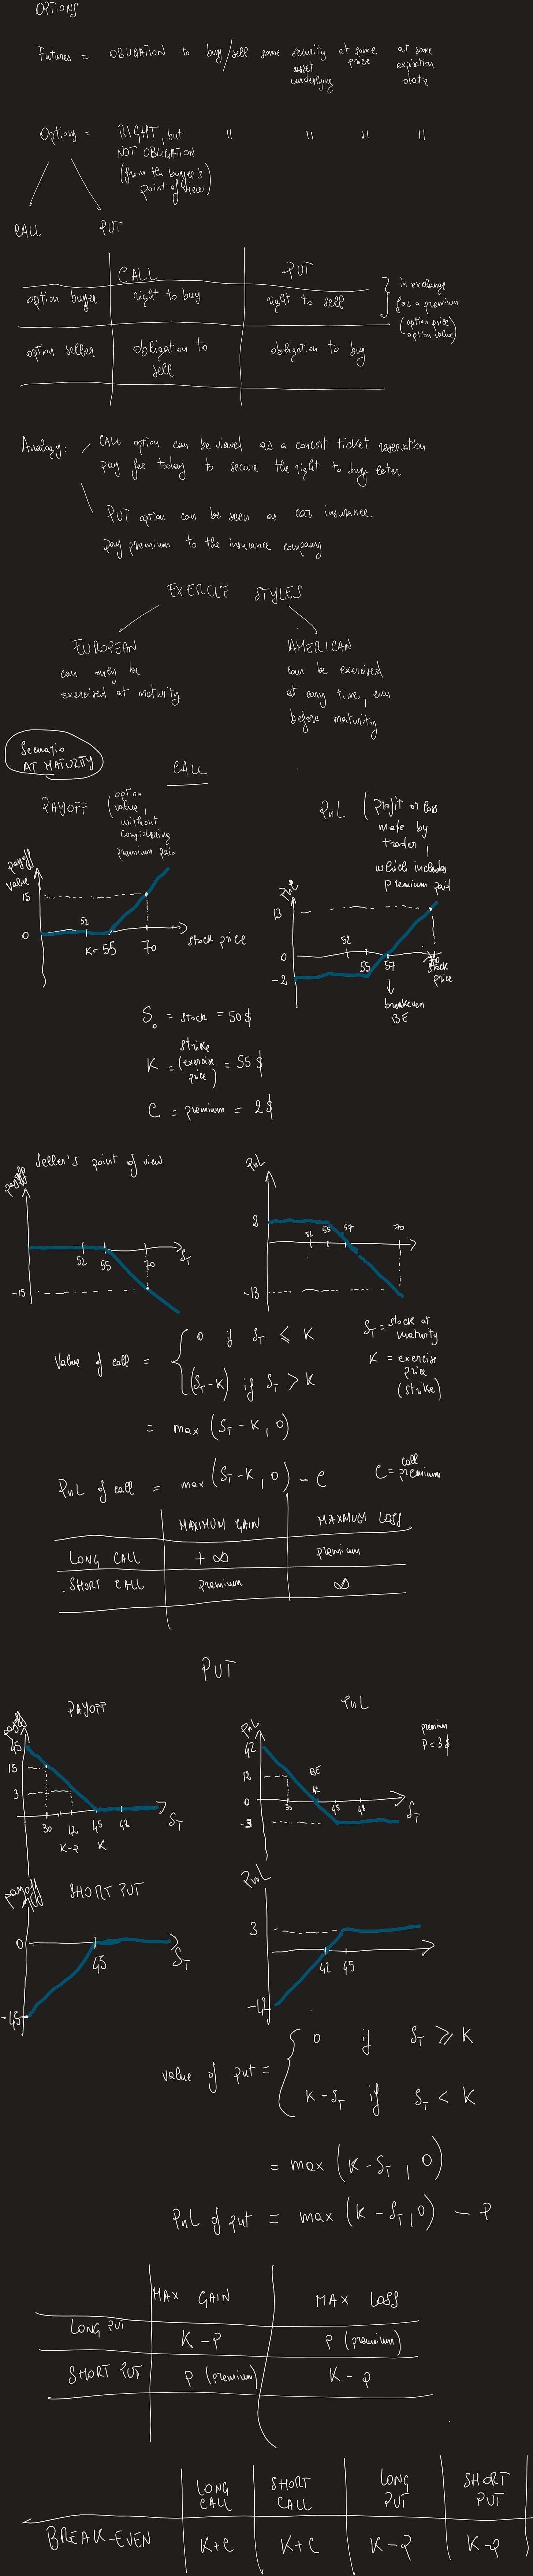 OPTIONS
Futures = OBLIGATION to buy/sell some security at some at some
asset price expiration
underlying date
Option = RIGHT, but " " " "
NOT OBLIGATION
(from the buyer's
point of view)
CALL PUT
CALL PUT
option buyer right to buy right to sell
in exchange
for a premium
(option price,
option value)
option seller obligation to obligation to buy
sell
Analogy: CALL option can be viewed as a concert ticket reservation
pay fee today to secure the right to buy later
PUT option can be seen as car insurance
pay premium to the insurance company
EXERCISE STYLES
EUROPEAN AMERICAN
can only be can be exercised
exercised at maturity at any time, even
before maturity
Scenario
AT MATURITY
CALL
PAYOFF (option
value,
without
considering
premium paid
PnL (profit or loss
made by
trader,
which includes
premium paid
payoff
value
15
0
52
K = 55 70 stock price
PnL
13
0
-2
52
55 57 70
stock
price
breakeven
BE
S₀ = stock = 50 $
K = strike
(exercise
price) = 55 $
C = premium = 2 $
Seller's point of view
payoff
52 55 70 S_T
-15
PnL
2
52 55 57 70
-13
Value of call = { 0 if S_T ⩽ K
(S_T - K) if S_T > K
S_T = stock at
maturity
K = exercise
price
(strike)
= max (S_T - K, 0)
PnL of call = max (S_T - K, 0) - C
C = call
premium
MAXIMUM GAIN MAXIMUM LOSS
LONG CALL + ∞ premium
SHORT CALL premium ∞
PUT
PAYOFF PnL
payoff
45
15
3
30 42 45 48 S_T
K-P K
PnL
42
12
0
-3
BE
30 42 45 48 S_T
premium
P = 3 $
payoff SHORT PUT
0
45 S_T
-45
PnL
3
42 45
-42
value of put = { 0 if S_T ⩾ K
K - S_T if S_T < K
= max (K - S_T, 0)
PnL of put = max (K - S_T, 0) - P
MAX GAIN MAX LOSS
LONG PUT K - P P (premium)
SHORT PUT P (premium) K - P
LONG SHORT LONG SHORT
CALL CALL PUT PUT
BREAK-EVEN K+C K+C K-P K-P